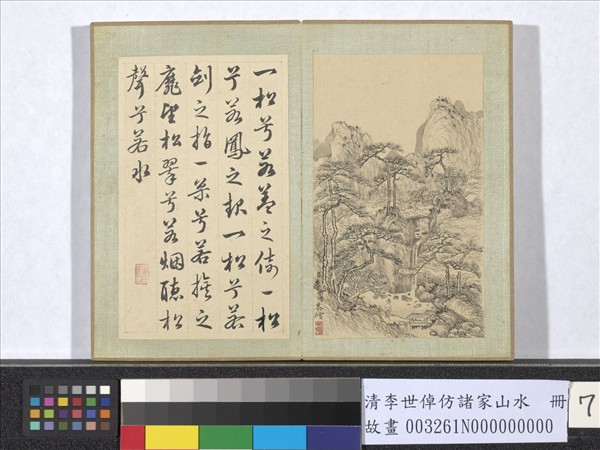 一松兮若蓋之倚一松
兮若鳳之欹一松兮若
劍之指一兮若旌之
麾望松翠兮若烟聽松
聲兮若水
清李世倬仿諸家山水 冊
故畫 003261N000000000
7